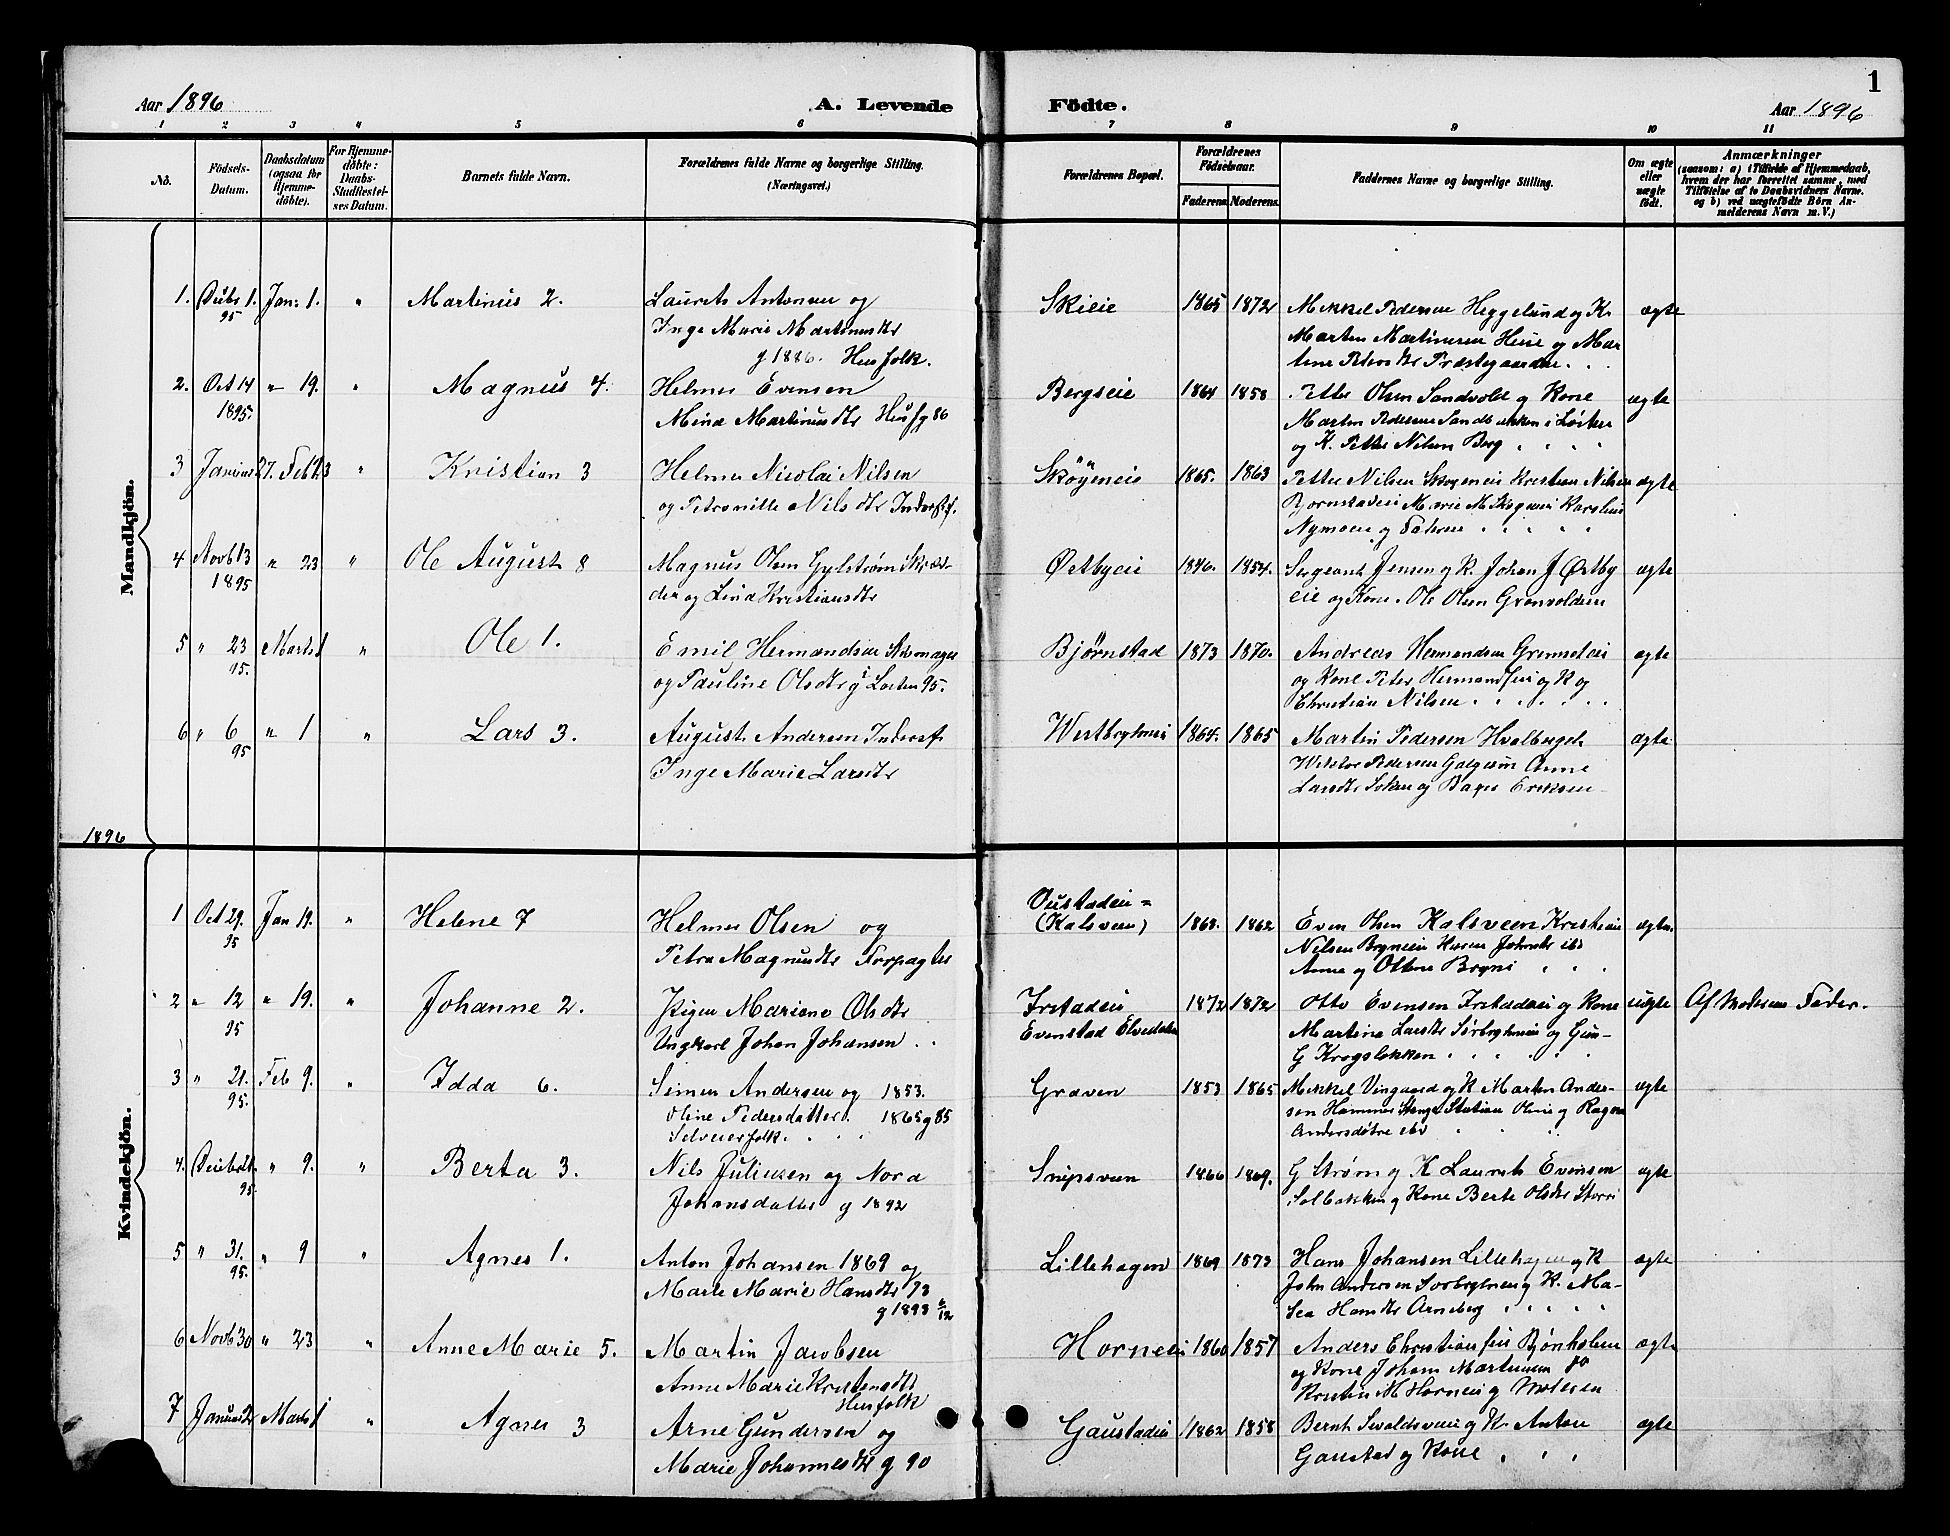 Aar 1896
A. Levende
Födte.
Aar 1896
1
1 2 3 4 5 6 7 8 9 10 11
No.
Födsels-
Datum.
Daabsdatum
(ogsaa for
Hjemme-
döbte).
For Hjemme-
döbte:
Daabs-
Stadfæstel-
ses Datum.
Barnets fulde Navn.
Forældrenes fulde Navne og borgerlige Stilling.
(Næringsvei.)
Forældrenes Bopæl.
Forældrenes
Födselsaar.
Faderens
Moderens
Faddernes Navne og borgerlige Stilling.
Om ægte
eller
uægte
födt.
Anmærkninger
(saasom: a) i Tilfælde af Hjemmedaab,
hvem der har forrettet samme, med
Tilföielse af to Daabsvidners Navne.
og b) ved uægtefödte Börn An-
melderens Navn m. V.)
Mandkjön.
1. Decbr 1. 95 Jan: 1. " Martinus 2.
Laurits Antonsen og
Inge Marie Martinusdtr
g 1886. Husfolk.
Skieie 1865 1872
Mikkel Pedersen Heggelund og K.
Marten Martinusen Heie og Mar
tene Petersdtr Præstegaarden . .
ægte
2. Oct 14 1895. " 19. " Magnus 4.
Helmer Evensen
Mina Martinusdtr Husf g 86
Bergseie 1864 1858
Petter Olsen Sandvold og Kone
Marten Pedersen Sandbakken i Løiten
og K. Petter Nilsen Berg . . . .
ægte
3 Januar 27. Feb 23 " Kristian 3
Helmer Nicolai Nilsen
og Petronille Nilsdtr Inderstf.
Skøyeneie 1865. 1863
Petter Nilsen Skøyeneie Kristian Nilsen
Bjørnstadeie Marie M Skøyeneie Karoline
Nymoen og Faderen . . . . .
ægte
4 Novb 13 1895 " 23 " Ole August 8
Magnus Olsen Gylstrøm Skræd-
der og Lina Kristiansdtr
Østbyeie 1846. 1854.
Sergeant Jensen og K. Johan J Østby
eie og Kone. Ole Olsen Grønvolden
ægte
5 " 23 95. Marts 1 " Ole 1.
Emil Hermandsen Skomager
og Pauline Olsdtr g i Løiten 95.
Bjørnstad 1873 1870.
Andreas Hermandsen Grimseteie
og Kone Peter Hermandsen og K og
Christian Nilsen . . . . . .
ægte
6 " 6 95 " 1 " Lars 3.
August Andersen Inderstf
Inge Marie Larsdtr
Westbyhnei 1864. 1865
Martin Pedersen Hvalberget
Viktor Pedersen Galgum Anne
Larsdtr Soken og Barn Eriksen
ægte
1896
Kvindekjön.
1 Oct 29. 95 Jan 19. " Helene 7
Helmer Olsen og
Petra Magnusdtr Forpagter
Oustadeie =
(Kalsveen) 1863. 1862
Even Olsen Kalsveen Kristian
Nilsen Bryneeie Karen Johnsdtr ibd
Anne og Ottine Bryni . . .
ægte.
2 " 12 95 " 19. " Johanne 2.
Pigen Mariane Olsdtr
Ungkarl Johan Johansen . .
Irstadeie
Evenstad Elvedalen 1872 1872
Otto Evensen Irstadeie og Kone
Martina Larsdtr Sørbyhnei og Gun
G Krogsløkken . . . .
uægte
Af Moderens Fader.
3 " 21. 95. Feb 9. " Idda 6.
Simen Andersen og 1853.
Oline Pedersdatter. 1865 g 85
Selveierfolk. . .
Graven 1853 1865
Mikkel Vingaard og K. Marten Ander-
sen Hammer Stange Station Oline og Ragna
Andersdøtre ibd . .
ægte
4. 95. " 9. " Berta 3.
Nils Juliusen og Nora
Johansdatter g 1892
Snipsveen 1866 1869.
G Strøm og K Laurits Evensen
Solbakken og Kone Berte Olsdtr Storri
ægte
5 " 31. 95. " 9 " Agnes 1.
Anton Johansen 1869 og
Marte Marie Hansdtr 73
g 1893 6/12
Lillehagen 1869 1873
Hans Johansen Lillehagen og K
John Andersen Sørbyhnen og K. Ma-
tea Hansdtr Arneberg . . . . .
ægte
6 Novb 30 " 23 " Anne Marie 5.
Martin Jacobsen
Anne Marie Kristensdtr
Husfolk
Horneeie 1860 1857
Anders Christiansen Bjønholen
og Kone Johan Martinsen
Kristin M Horneei og Moderen
ægte
7 Januar 2 Marts 1 " Agnes 3
Arne Gundersen og
Marie Johannesdtr g 90
Gaustadeie 1862 1858
Bernt Sivaldsveen og K. Anton
Gaustad og Kone . . .
ægte